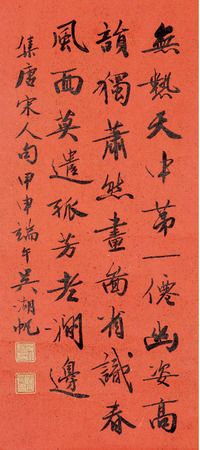 無熱天中第一僊幽姿高
韻獨蕭然畫面省識春
風面莫遣孤芳老澗邊
集唐宋人句甲申端午吴湖帆